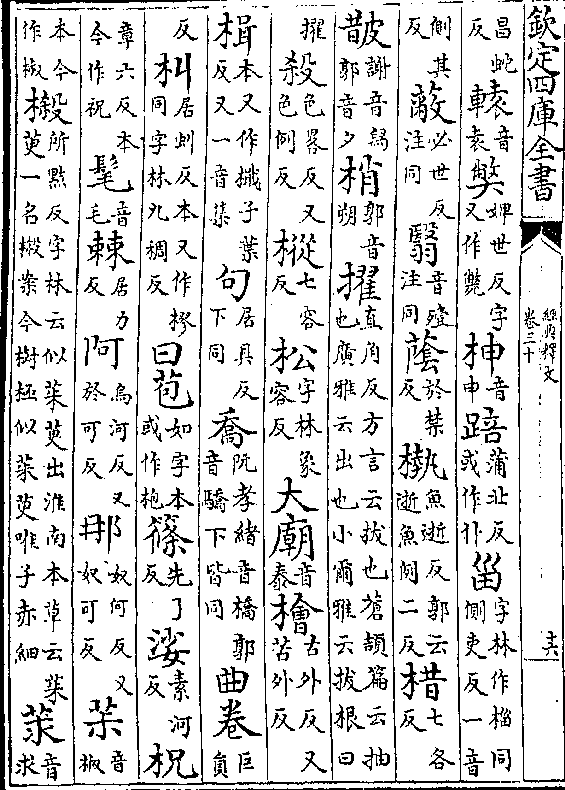 欽定四庫全書
經典釋文
卷三十
十六
昌蛇反 轅音袁 獘婢世反字又作斃 柛音申 踣蒲北反或作仆 甾字林作椔同側吏反一音
側其反 蔽必世反注同 翳音殪注同 蔭於禁反 槸魚逝反郭云逝魚闕二反 棤七各反
皵謝音舄郭音夕 梢郭音朔 擢直角反方言云拔也蒼頡篇云抽也廣雅云出也小爾雅云拔根曰
擢 殺色畧反又色例反 樅七容反 松字林象容反 大廟音泰 檜古外反又苦外反
楫本又作檝子葉反又一音集 句居具反下同 喬阮孝緒音橋郭音驕下皆同 曲卷巨員
反 朻居虯反本又作樛同字林九稠反 曰苞如字本或作枹 篠先了反 娑素河反 柷
章六反本今作祝 髦音毛 棘居力反 阿烏河反又於可反 那奴何反又奴可反 茮音椒
本今作椒 樧所黠反字林云似茱萸出淮南本草云茱萸一名樧案今樹極似茱萸唯子赤細 莍音求